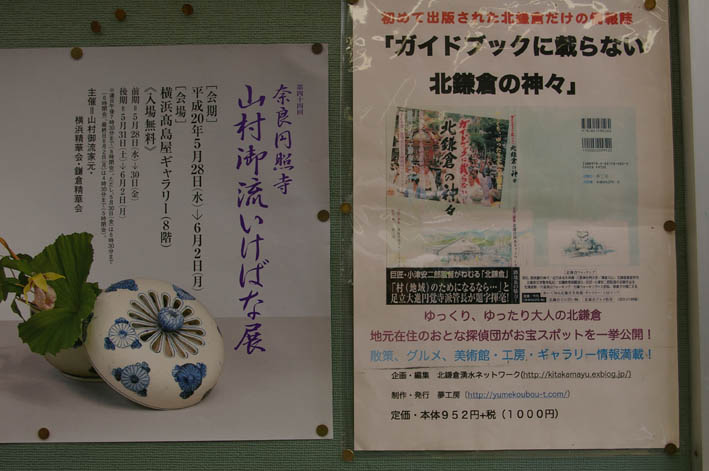 第四十四回
奈良円照寺
山村御流いけばな展
[会期]
平成20年5月28日(水)→6月2日(月)
[会場]
横浜高島屋ギャラリー(8階)
《入場無料》
前期=5月28日(水)→30日(金)
後期=5月31日(土)→6月2日(月)
主催=山村御流家元・
横浜精華会・鎌倉精華会
初めて出版された北鎌倉だけの情報誌
「ガイドブックに載らない
北鎌倉の神々」
ガイドブックに載らない
北鎌倉の神々
北鎌倉の神々
巨匠・小津安二郎監督がねむる「北鎌倉」
「村(地域)のためになるなら…」と
足立大進円覚寺派管長が題字揮毫!
ゆっくり、ゆったり大人の北鎌倉
地元在住のおとな探偵団がお宝スポットを一挙公開!
散策、グルメ、美術館・工房・ギャラリー情報満載!
企画・編集 北鎌倉湧水ネットワーク(http://kitakamayu.exblog.jp/)
制作・発行 夢工房(http://yumekoubou-t.com/)
定価・本体952円+税(1000円)